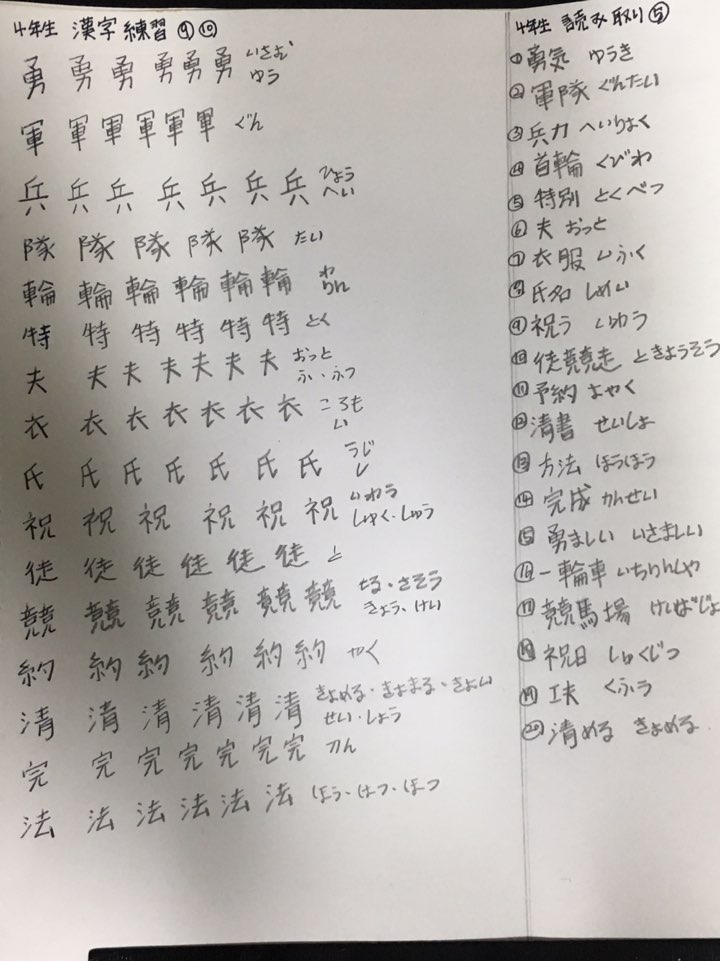 4年生 漢字練習 ⑨⑩
勇 勇 勇 勇 勇 勇 いさむ
ゆう
軍 軍 軍 軍 軍 軍 ぐん
兵 兵 兵 兵 兵 兵 兵 ひょう
へい
隊 隊 隊 隊 隊 たい
輪 輪 輪 輪 輪 輪 わ
りん
特 特 特 特 特 特 とく
夫 夫 夫 夫 夫 夫 夫 おっと
ふ・ふう
衣 衣 衣 衣 衣 衣 衣 ころも
い
氏 氏 氏 氏 氏 氏 氏 うじ
し
祝 祝 祝 祝 祝 祝 いわう
しゅく・しゅう
徒 徒 徒 徒 徒 徒 と
競 競 競 競 競 競 せる・きそう
きょう、けい
約 約 約 約 約 約 やく
清 清 清 清 清 清 きよめる・きよまる・きよい
せい・しょう
完 完 完 完 完 完 かん
法 法 法 法 法 法 ほう・はつ・ほつ
4年生 読み取り⑤
①勇気 ゆうき
②軍隊 ぐんたい
③兵力 へいりょく
④首輪 くびわ
⑤特別 とくべつ
⑥夫 おっと
⑦衣服 いふく
⑧氏名 しめい
⑨祝う いわう
⑩徒競走 ときょうそう
⑪予約 よやく
⑫清書 せいしょ
⑬方法 ほうほう
⑭完成 かんせい
⑮勇ましい いさましい
⑯一輪車 いちりんしゃ
⑰競馬場 けいばじょ
⑱祝日 しゅくじつ
⑲工夫 くふう
⑳清める きよめる